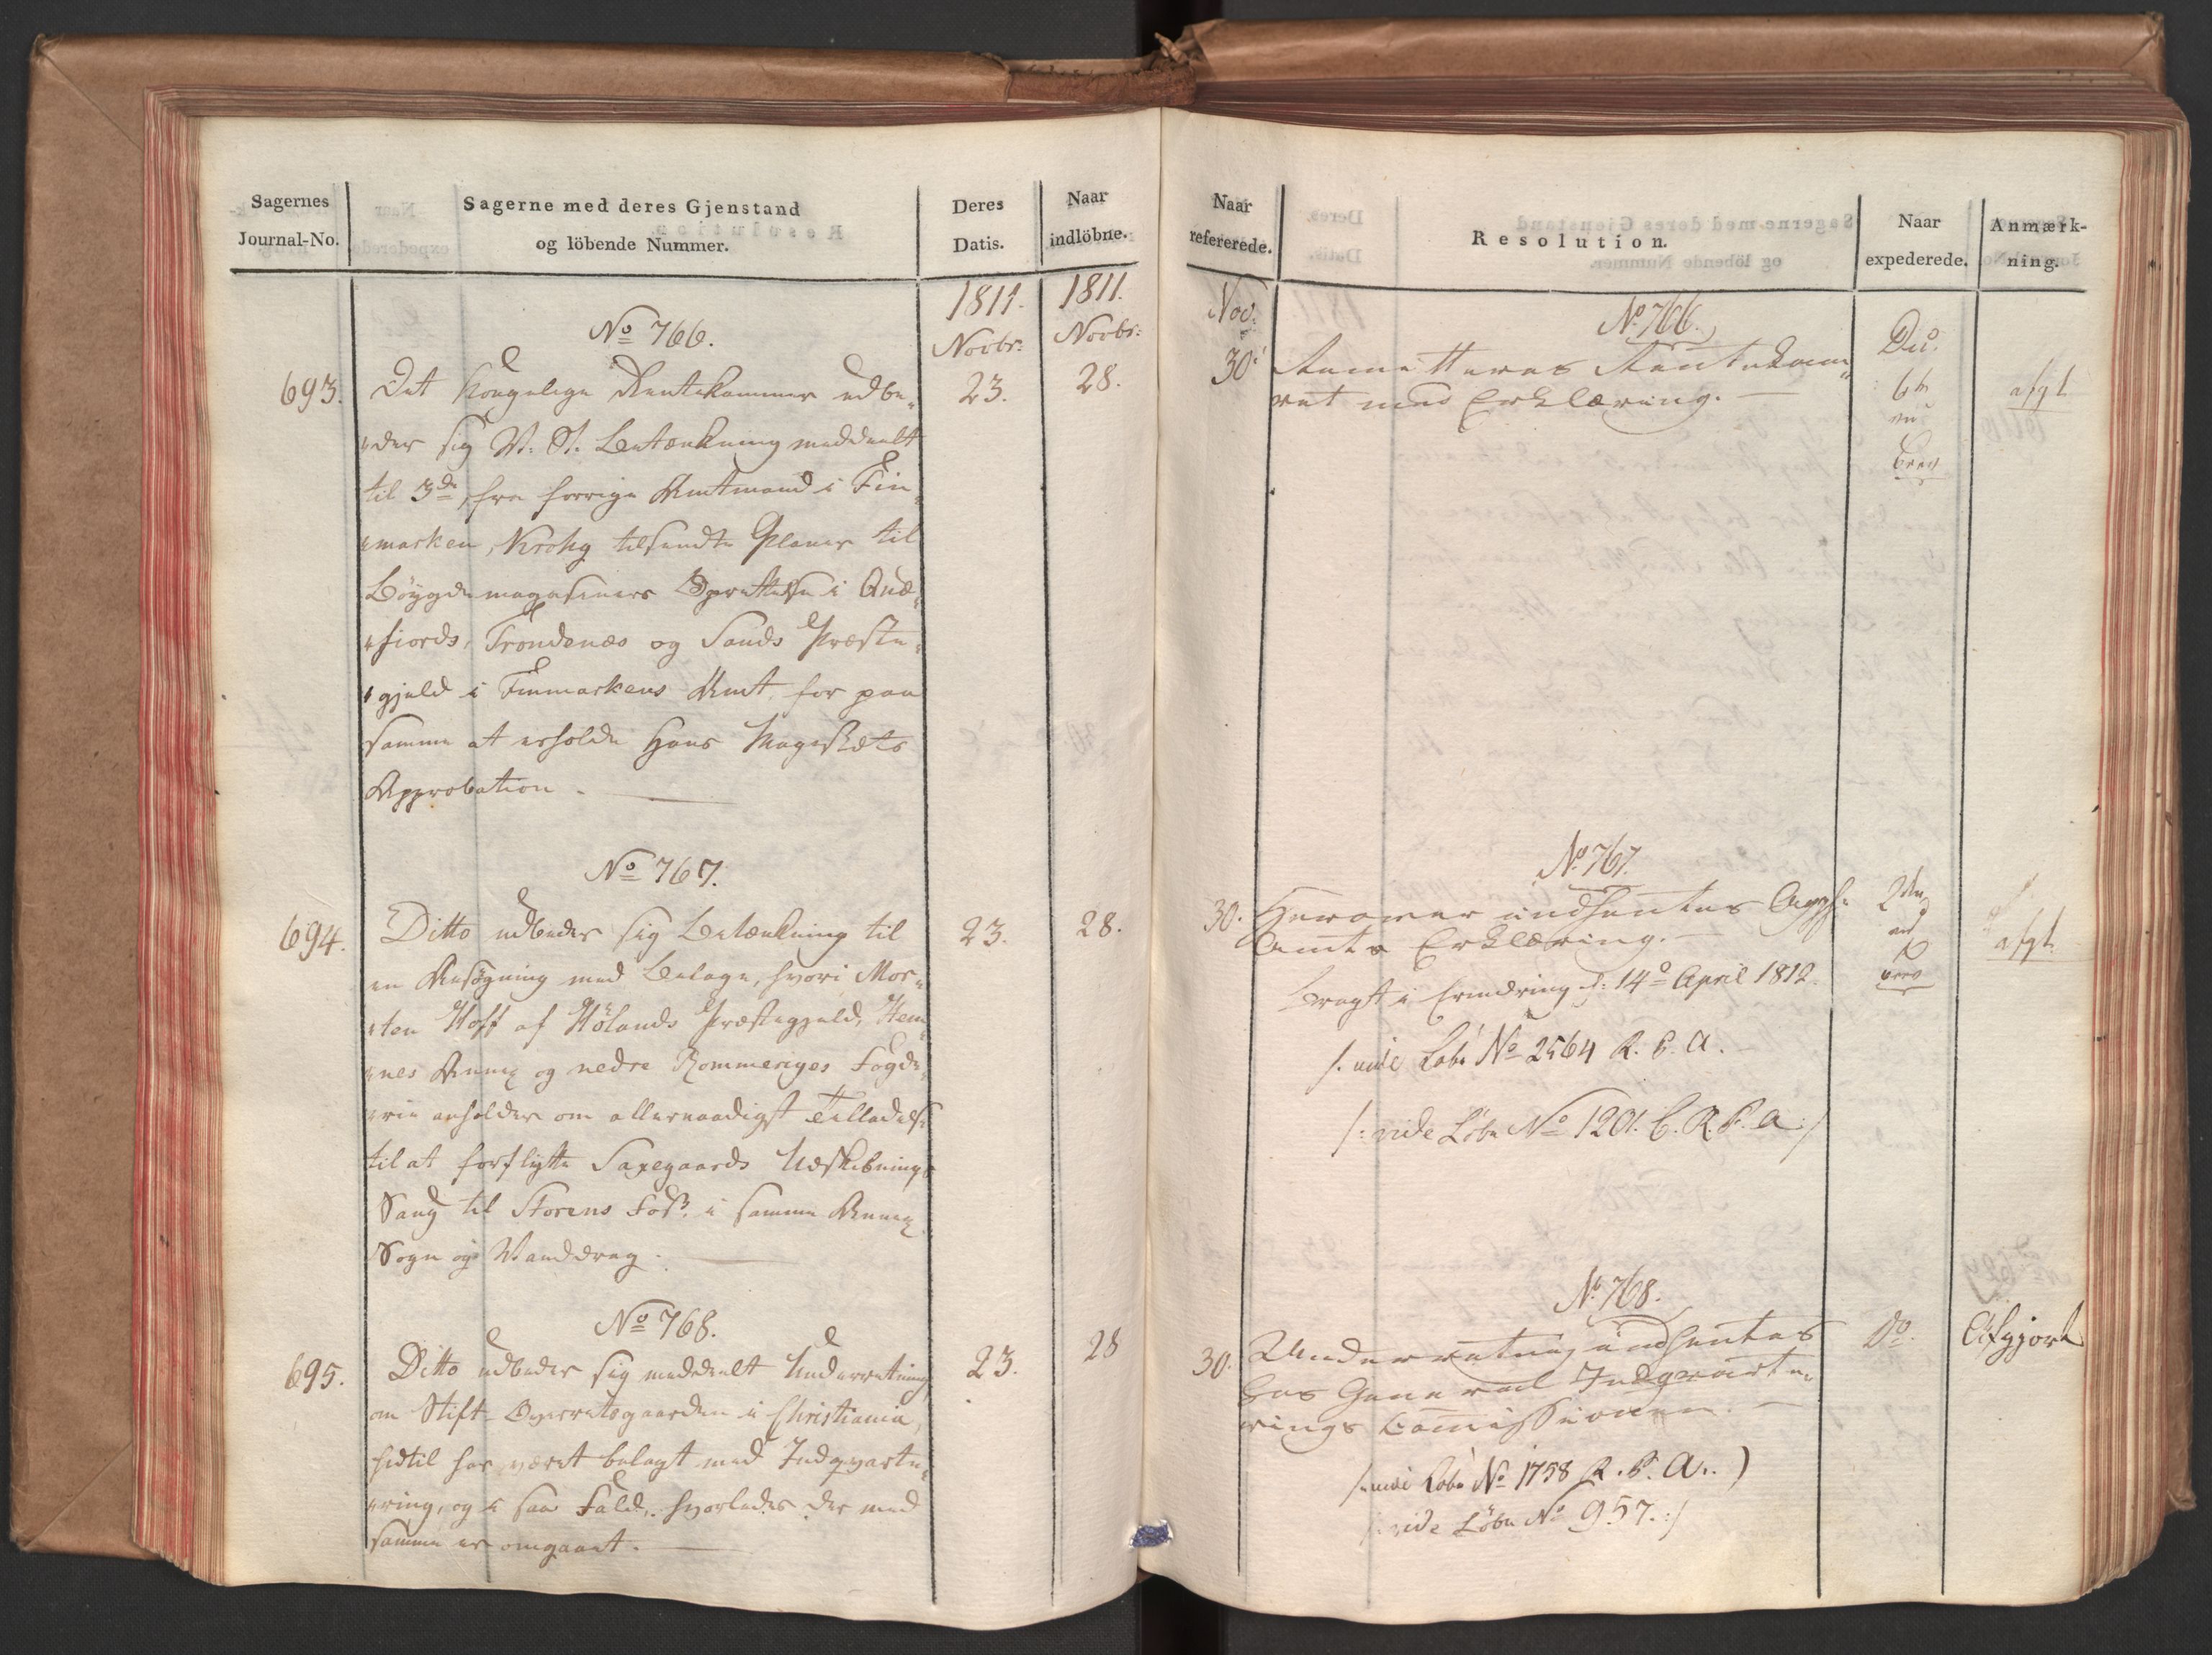 Sagernes
Journal-No.
Sagerne med deres Gjenstand
og löbende Nummer.
Deres
Datis.
Naar
indlöbne.
1811.
Novbr:
1811.
Novbr:
No 766.
693.
Det Kongelige Rentekammer udbe-
der sig V. St. Betænkning meddeelt
til 3de, fra forrige Amtmand i Fin-
marken, Krohg tilsendte Planer til
Böygdemagasiners Oprettelse i Qvæ-
fiords, Trondenæs og Sands Præste-
gjeld i Finmarkens Amt, for paa
samme at erholde Hans Majestæts
Approbation.
23.
28.
No 767.
694.
Ditto udbeder sig Betænkning til
en Ansögning med Bilage, hvori Mor-
ten Hoff af Hölands Præstegjeld, Hem-
nes Annex og nedre Rommeriges Fogde-
rie anholder om allernaadigst Tilladelse
til at forflytte Saxegaards Udskibnings
Saug til Storens Foss i samme Annex
Sogn og Vanddrag.
23.
28.
No 768.
695.
Ditto udbeder sig meddeelt Underretning,
om Stift-Overretsgaarden i Christiania,
hidtil har været belagt med Indqvarte-
ring, og i saa Fald, hvorledes der med
samme er omgaaet.
23.
28
Naar
refererede.
Resolution.
Naar
expederede.
Anmærk-
ning.
Nov:
No 766.
30
Remitteres Rentekam-
ret med Erklæring.
6te
Brev
afgt
No 767.
30.
Herover indhentes Aggh.
Amts Erklæring.
Bragt i Erindring d: 14o April 1812.
/: vide Löbe No 2564 R. P. A.
/: vide Löbe No 1201. C. R. P. A :/
2den
Brev
afgt.
No 768.
30.
Underretning indhentes
hos General Indqvarte-
rings Comissionen.
/: vide Löbe No 1758 R. P. A.. )
/: vide Löbe No 957. :/
Do.
Afgjort